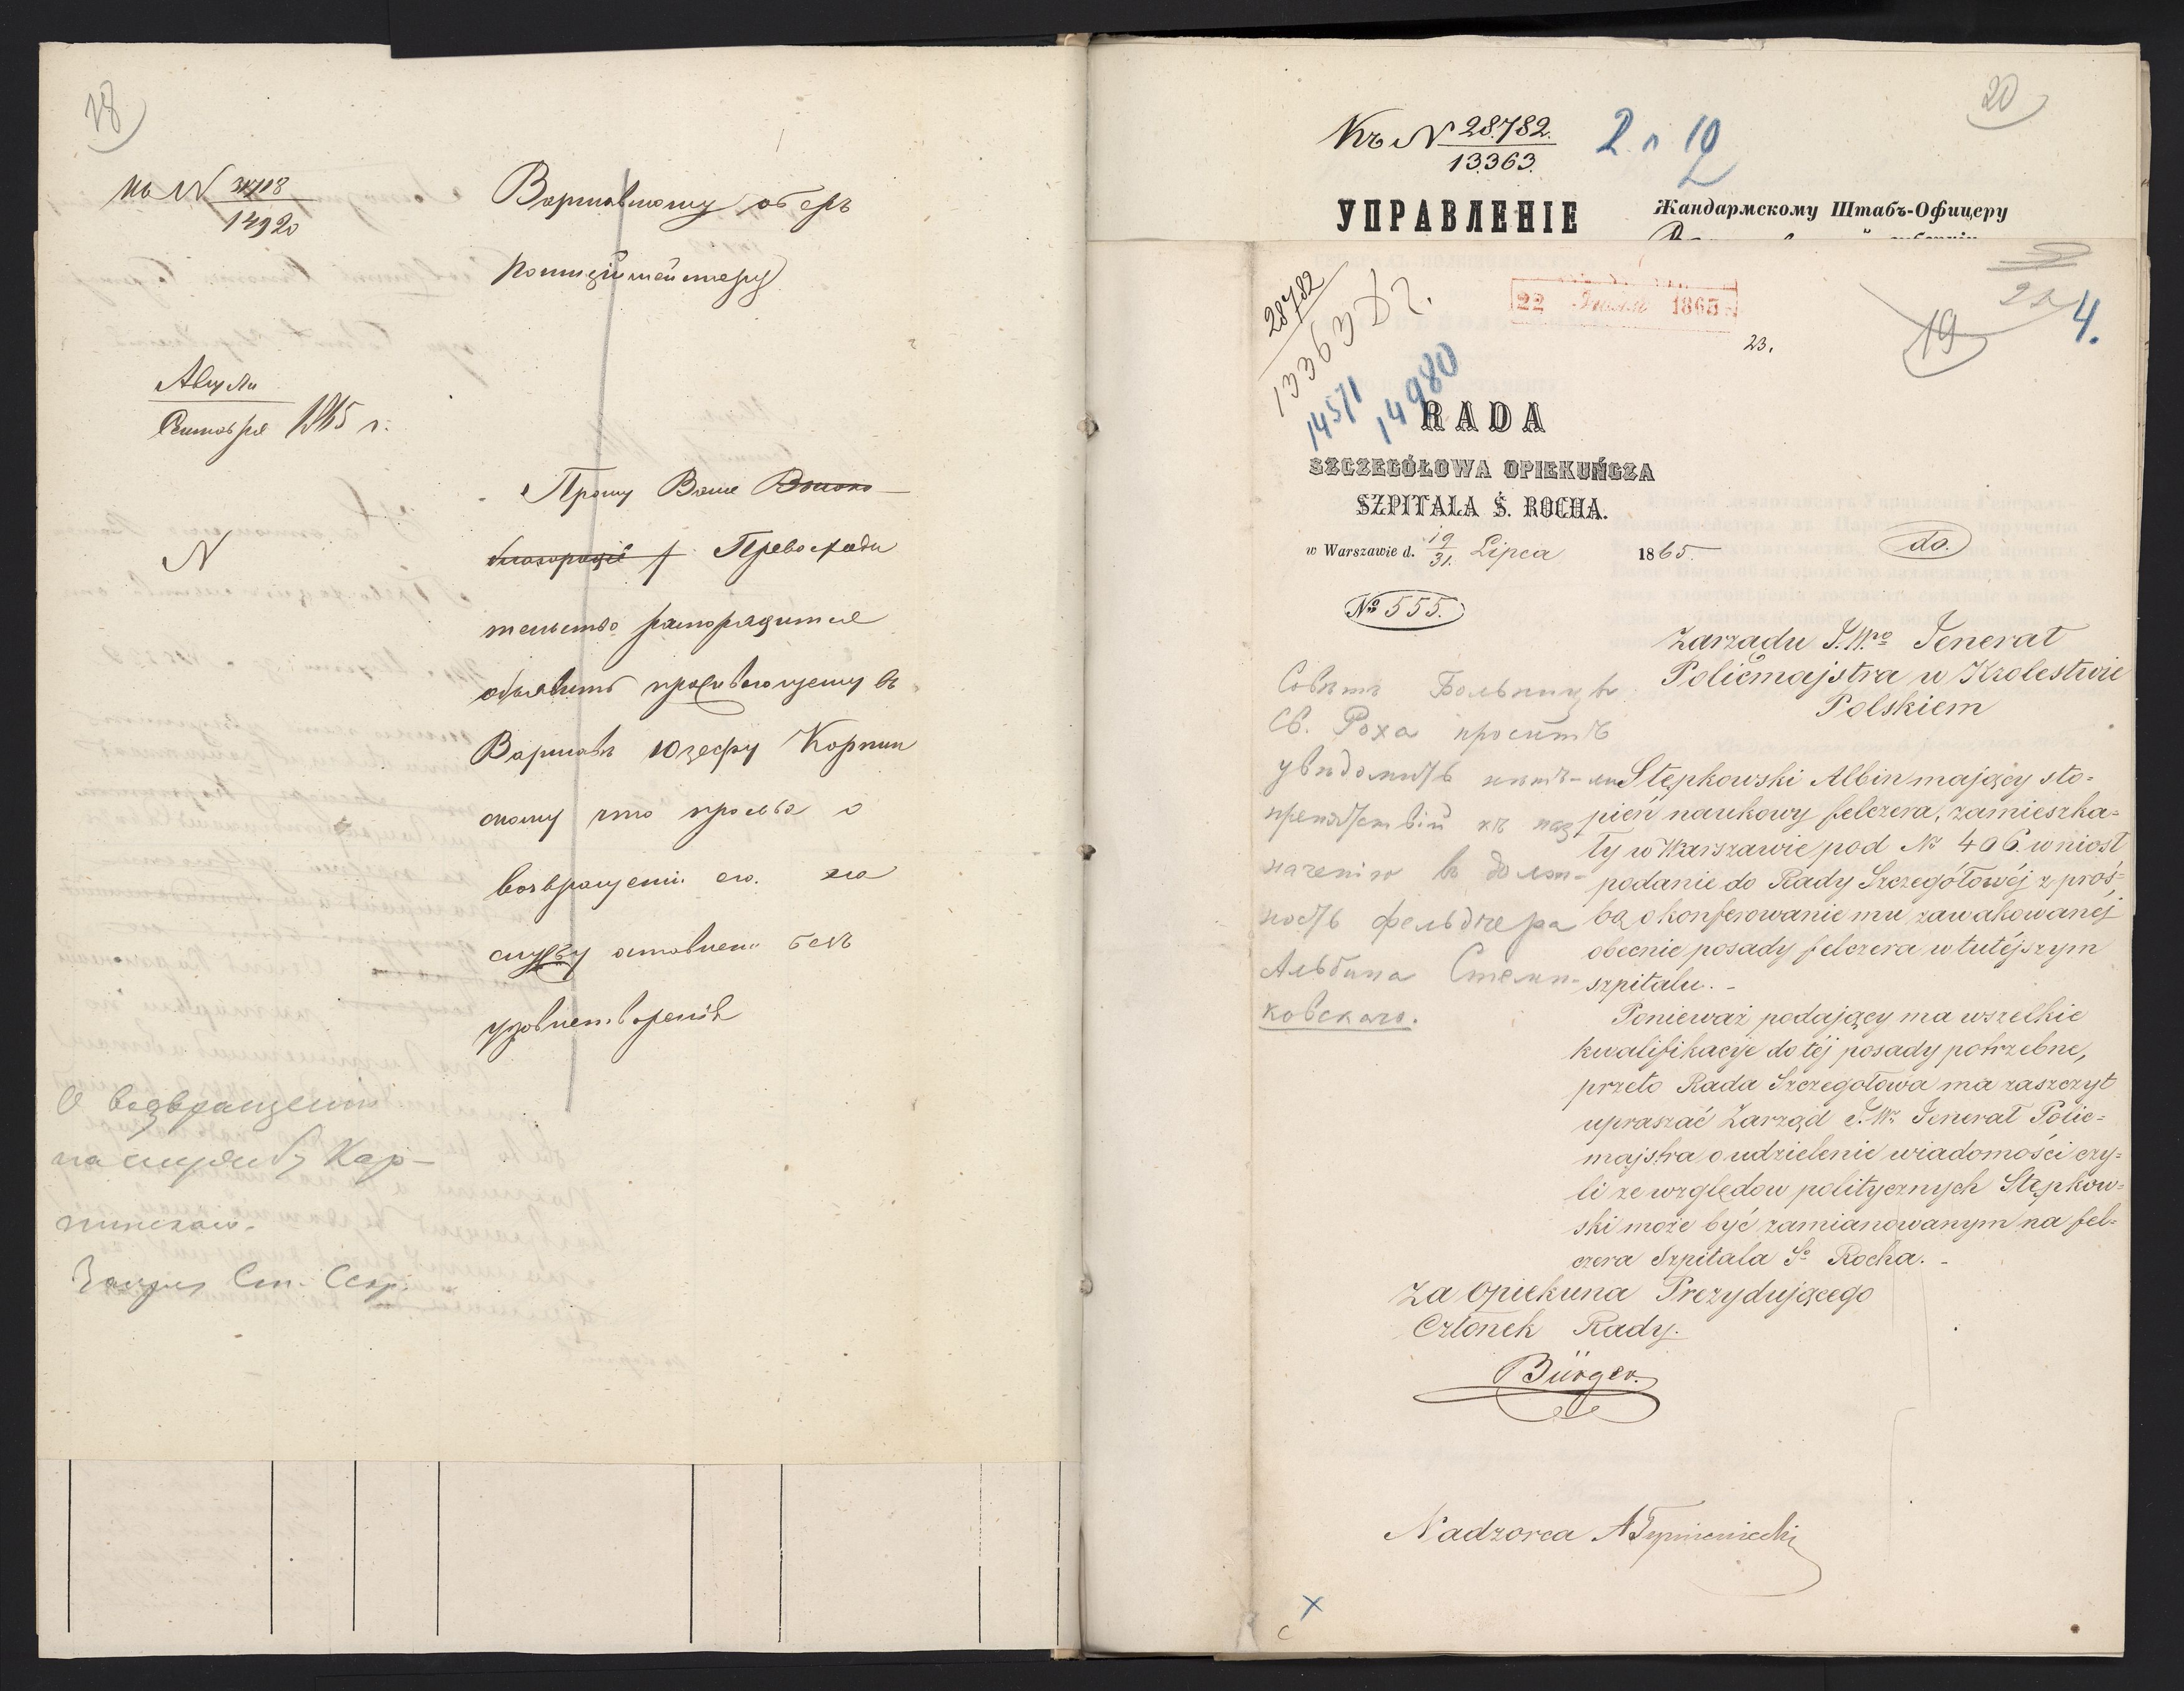 18
Къ N 31718
14920
Варшавскому оберъ
полицiймейстеру
Августа
Сентября 1865 г.
N
Прошу Ваше Высоко
благородiе Превосходи
тельство распорядиться
объявить проживающему въ
Варшавѣ Юзефу Карпин
скому что просьба о
возвращенiи его на
службу оставлена безъ
удовлетворенiя
О возвращенiи
на службу Кар-
пинскаго.
20
Къ N 28782.
13363.
2 л 12
УПРАВЛЕНIЕ
Жандармскому Штабъ-Офицеру
28782
13363
14571
14980
22 Iюля 1865
23.
19
4.
RADA
SZCZEGÓŁOWA OPIEKUŃCZA
SZPITALA Ś. ROCHA.
w Warszawie d. 19/31. Lipca 1865
do.
№ 555.
Zarządu J.W.go Jenerał
Policmajstra w Krolestwie
Polskiem
Совѣтъ Больницы
Св. Роха проситъ
увѣдомить нѣтъ-ли
препятствiй къ наз
наченiю въ долж-
ность фельдчера
Альбина Стемп-
ковскаго.
Stępkowski Albin mający sto-
pień naukowy felczera, zamieszka-
ły w Warszawie pod № 406. wniosł
podanie do Rady Szczegółowéj z proś-
bą o konferowanie mu zawakowanéj
obecnie posady felczera w tutéjszym
szpitalu. -
Ponieważ podający ma wszelkie
kwalifikacye do téj posady potrzebne,
przeto Rada Szczegołowa ma zaszczyt
upraszać Zarząd J.W. Jenerał Polic-
majstra o udzielenie wiadomości czy-
li ze względow politycznych Stępkow-
ski może być zamianowanym na fel-
czera Szpitala Sgo Rocha. -
Za Opiekuna Prezydującego
Członek Rady.
Bürger.
Nadzorca A Tymieniecki